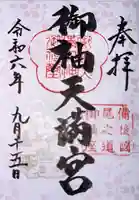 奉拝
備後國
尾之道
御袖天満宮
令和六年
九月十五日